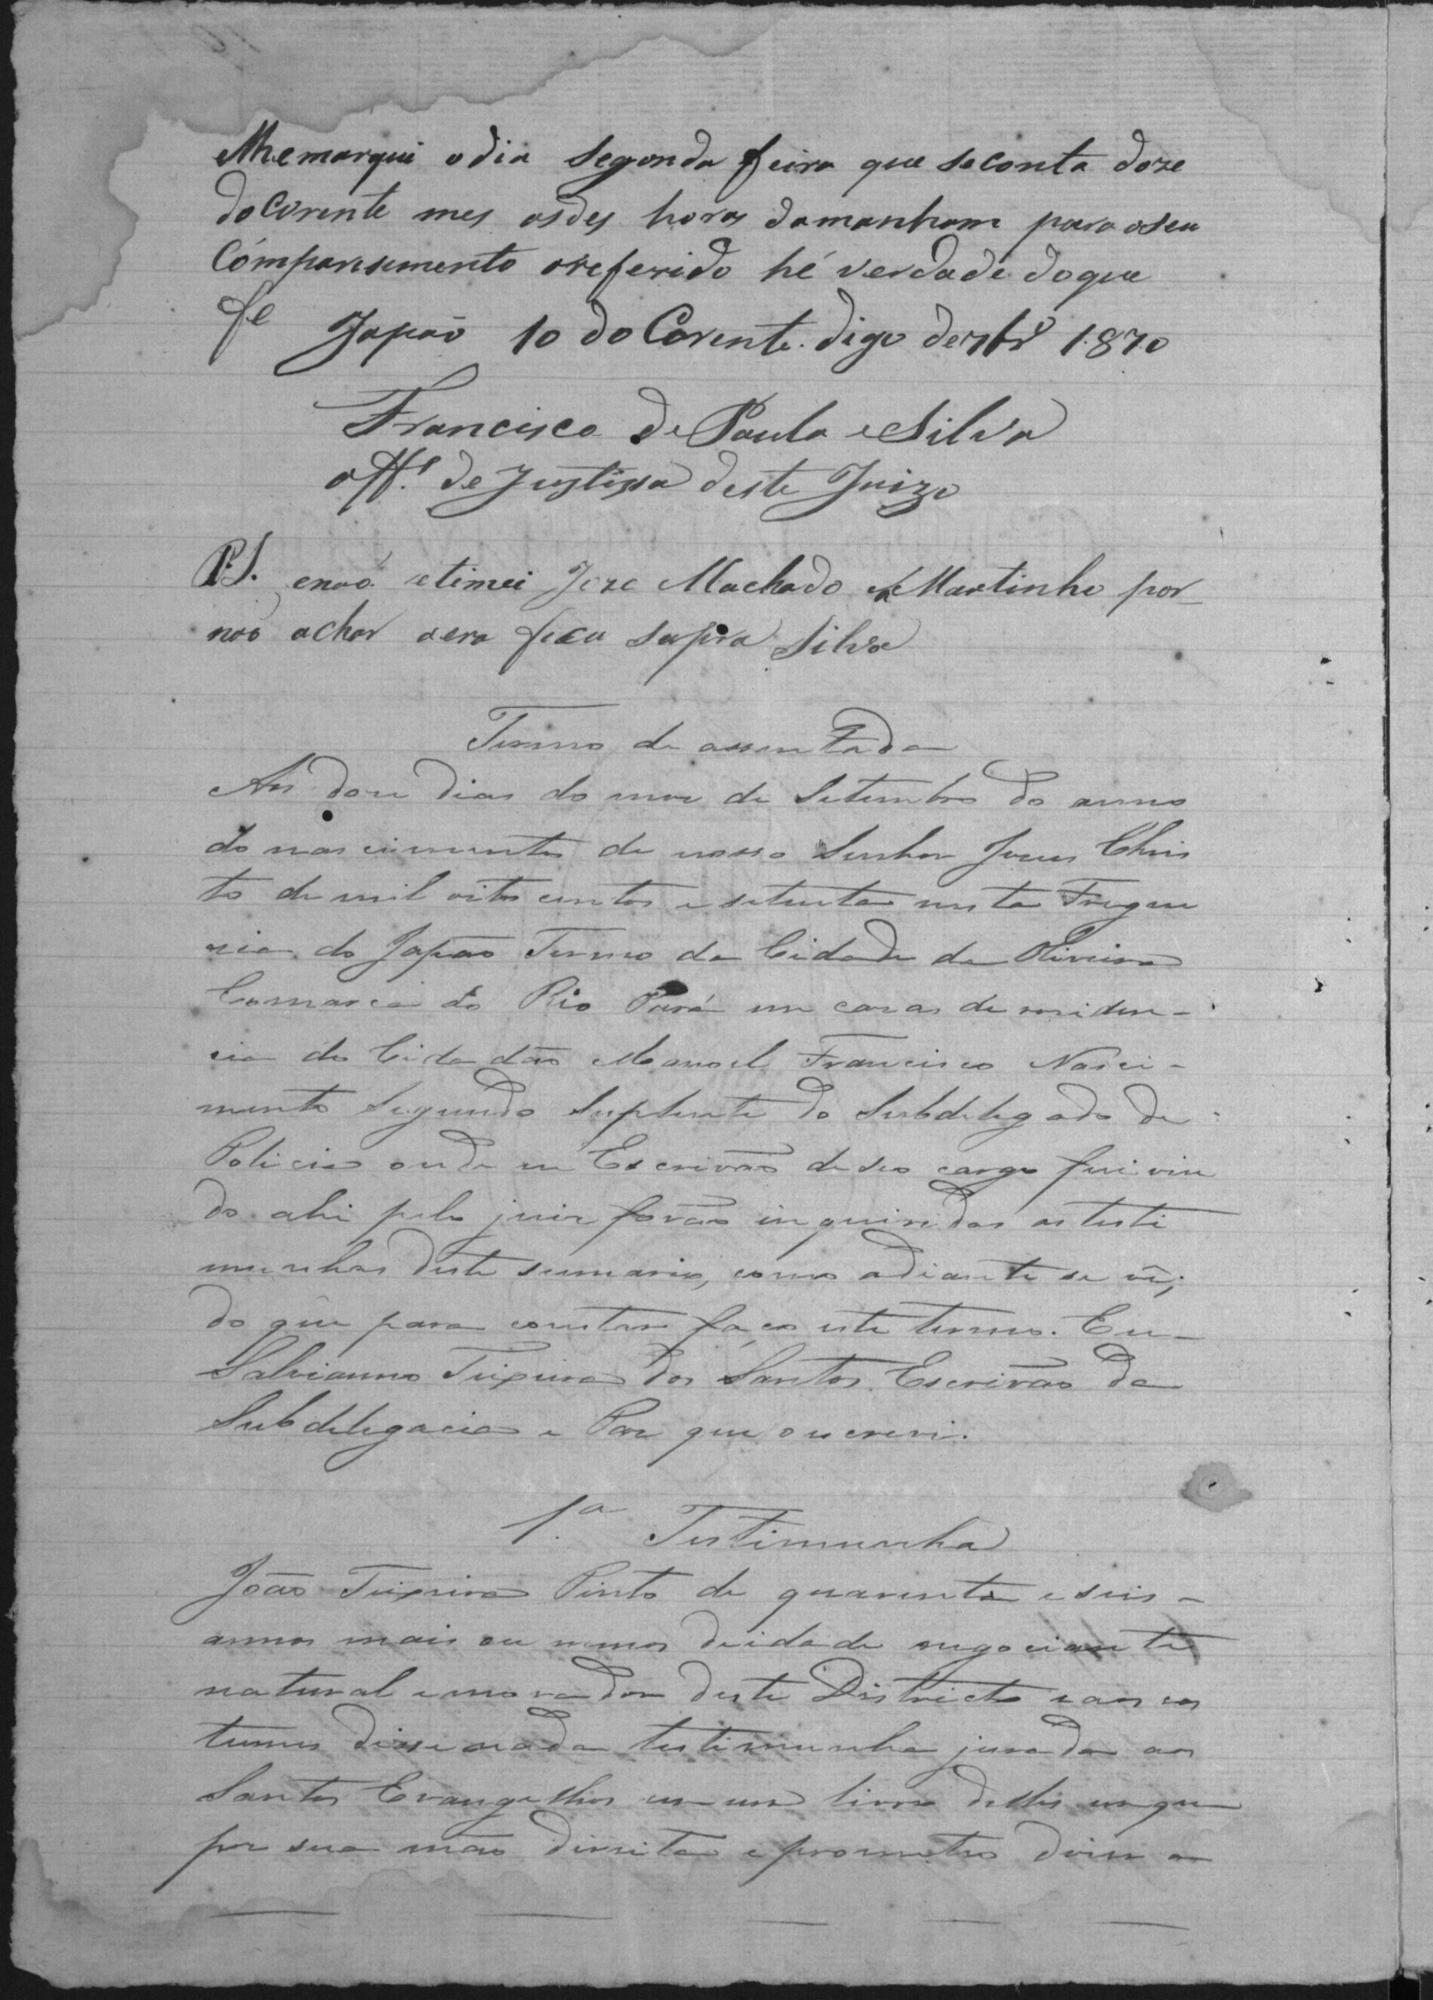 lhe marqui o dia segonda feira que se conta doze
do Corente mes as des horas da manham para o seu
Comparesimento o referido hé verdade do que
fe Japão 10 do Corente. digo de 7br.º 1870
Francisco de Paula e Silva
Off.al de Justissa deste Juizo
P.S. e naõ intimei Joze Machado e Martinho por
naõ achar a era feca supra Silva
Termo de assentada
Aos doze dias do mez de Setembro do anno
do nascimento de nosso Senhor Jesus Chris
to de mil oito centos e setenta nesta Fregue
zia do Japão Termo da Cidade da Oliveira
Comarca do Rio Pará em cazas de residen-
cia do Cidadão Manoel Francisco Nasci-
mento Segundo Suplente do Subdelegado de
Policia onde eu Escrivão de seo cargo fui vin
do ahi pelo juiz forão inquiridas as testi
munhas deste sumario, como adiante se vê;
do que para constar faço este termo. Eu-
Salvianno Teixeira dos Santos Escrivão da
Subdelegacia e Paz que o escrevi.
1.ª Testimunha
João Teixeira Pinto de quarenta e seis-
annos mais ou menos de idade negociante
natural e morador deste Districto e aos cos
tumes disse nada testimunha jurada aos
Santos Evangelhos em um livro delles em que
poz sua mão direita e prometteo dizer a